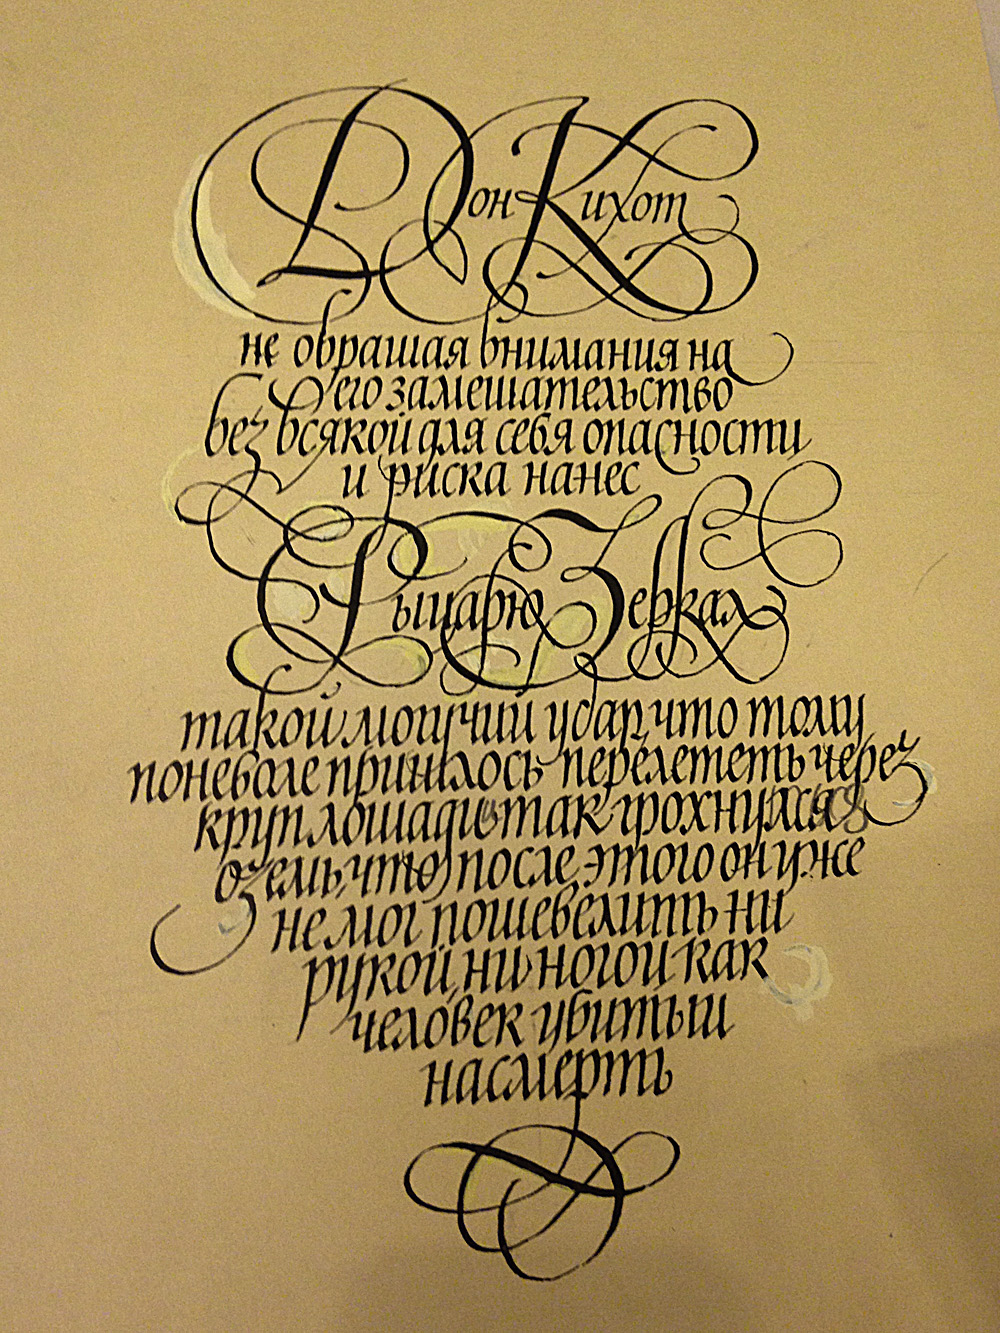 Дон Кихот
не обращая внимания на
его замешательство
без всякой для себя опасности
и риска нанес
Рыцарю Зеркал
такой могучий удар, что тому
поневоле пришлось перелететь через
круп лошади и так грохнулся
оземь, что после этого он уже
не мог пошевелить ни
рукой, ни ногой как
человек убитый
насмерть